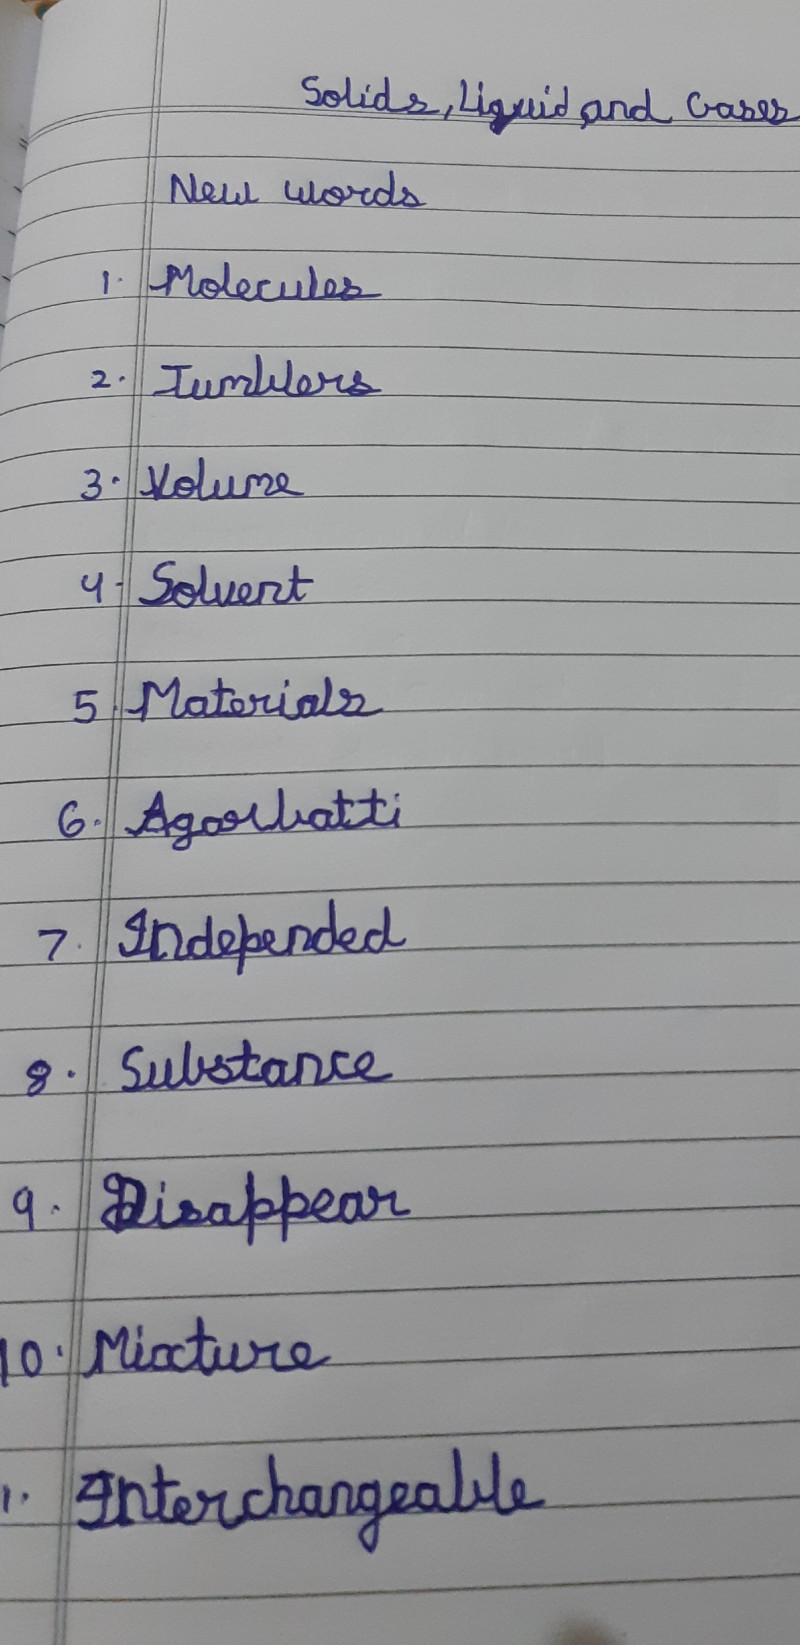 Solids, Liquid and Gases
New words
1. Molecules
2. Tumblers
3. Volume
4. Solvent
5. Materials
6. Agarbatti
7. Independed
8. Substance
9. Disappear
10. Mixture
1. Interchangeable